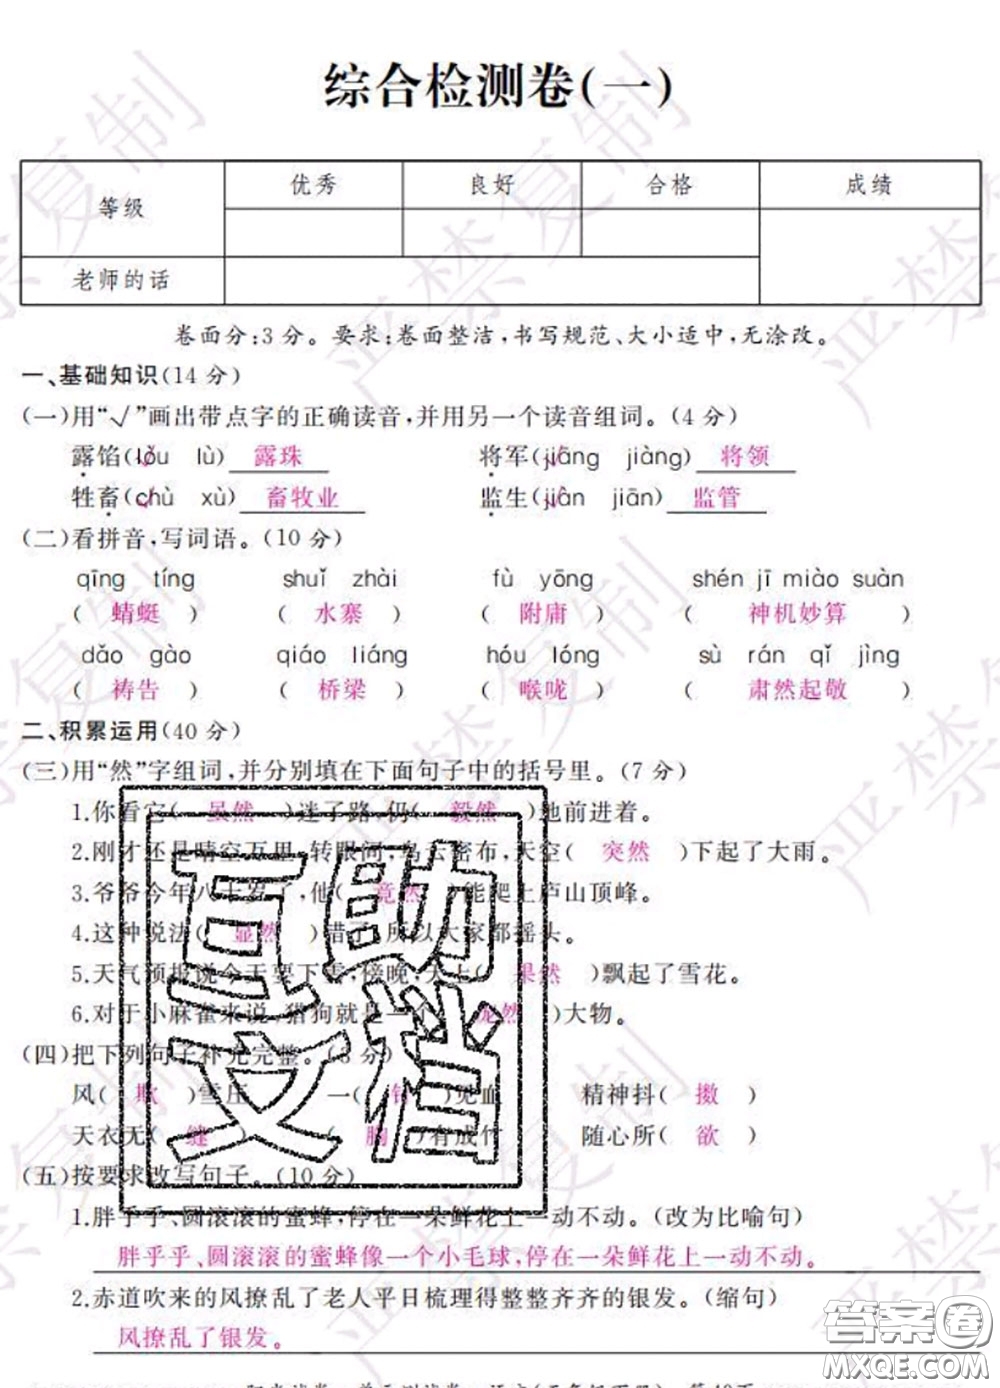 综合检测卷(一)
等级 优秀 良好 合格 成绩
老师的话
卷面分:3分。要求:卷面整洁,书写规范、大小适中,无涂改。
一、基础知识(14分)
(一)用“√”画出带点字的正确读音,并用另一个读音组词。(4分)
露馅(lòu lù) 露珠 将军(jiāng jiàng) 将领
牲畜(chù xù) 畜牧业 监生(jiàn jiān) 监管
(二)看拼音,写词语。(10分)
qīng tíng shuǐ zhài fù yōng shén jī miào suàn
( 蜻蜓 ) ( 水寨 ) ( 附庸 ) ( 神机妙算 )
dǎo gào qiáo liáng hóu lóng sù rán qǐ jìng
( 祷告 ) ( 桥梁 ) ( 喉咙 ) ( 肃然起敬 )
二、积累运用(40分)
(三)用“然”字组词,并分别填在下面句子中的括号里。(7分)
1.你看它( 虽然 )迷了路,仍( 毅然 )地前进着。
2.刚才还是晴空万里,转眼间,乌云密布,天空( 突然 )下起了大雨。
3.爷爷今年八十岁了,他( 竟然 )能爬上庐山顶峰。
4.这种说法( 显然 )错了,所以大家都摇头。
5.天气预报说今天要下雪,傍晚,天上( 果然 )飘起了雪花。
6.对于小麻雀来说,猎狗就是一个( 庞然 )大物。
(四)把下列句子补充完整。( 分)
风( 欺 )雪压 一( 针 )见血 精神抖( 擞 )
天衣无( 缝 ) ( 胸 )有成竹 随心所( 欲 )
(五)按要求改写句子。(10分)
1.胖乎乎、圆滚滚的蜜蜂,停在一朵鲜花上一动不动。(改为比喻句)
胖乎乎、圆滚滚的蜜蜂像一个小毛球,停在一朵鲜花上一动不动。
2.赤道吹来的风撩乱了老人平日梳理得整整齐齐的银发。(缩句)
风撩乱了银发。
互助文档
答案圈
MXQE.COM
严禁复制